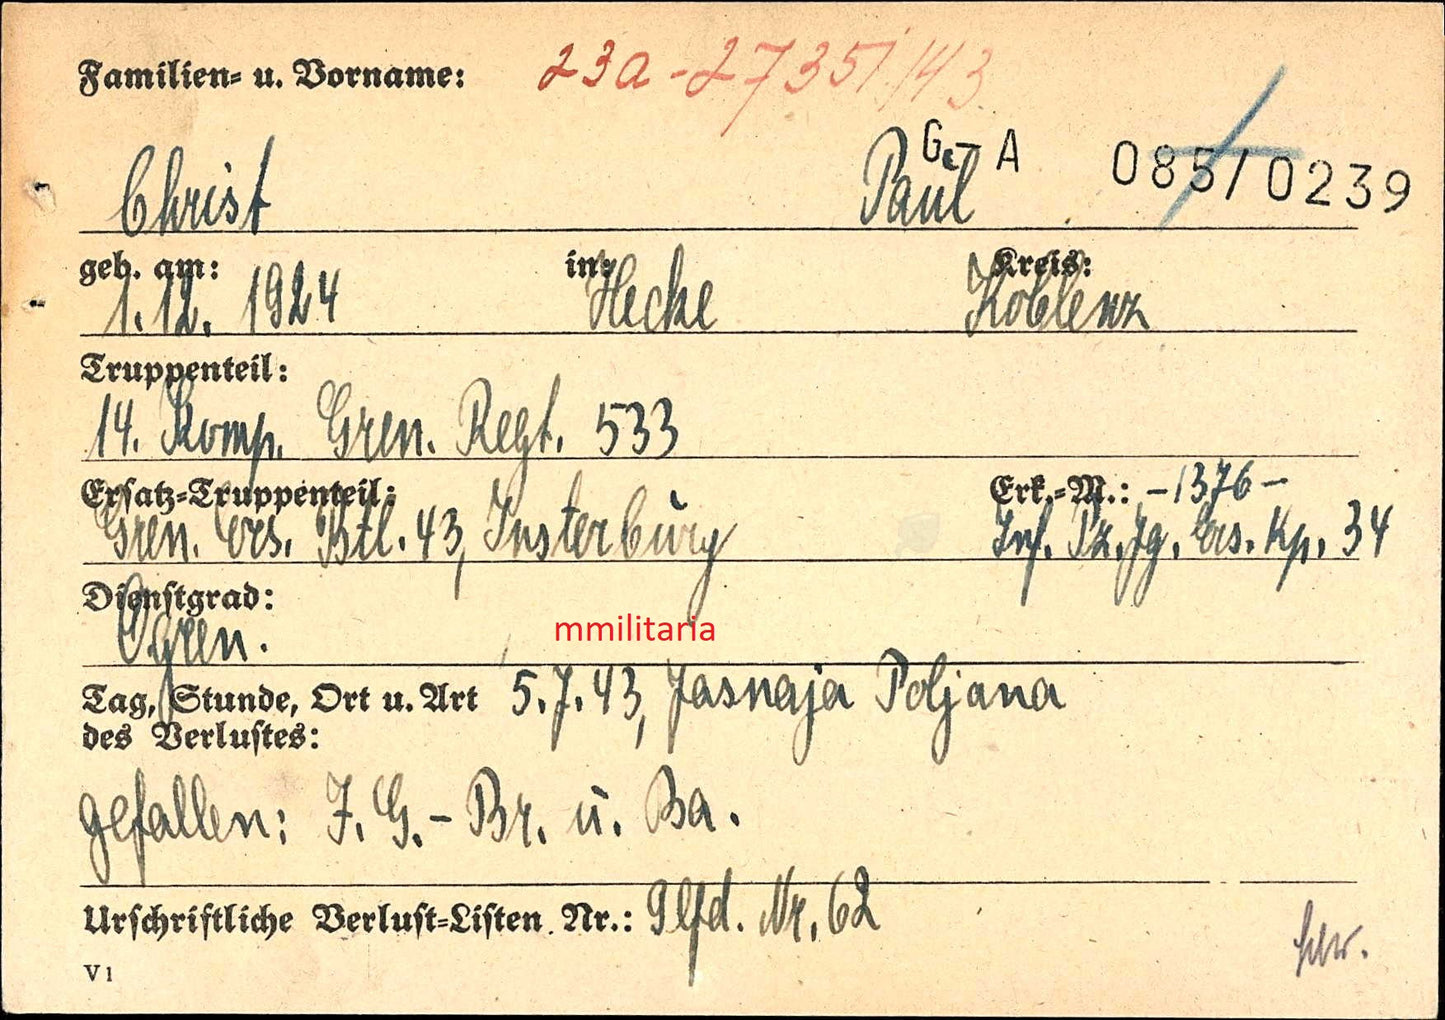 Familien- u. Vorname: 23a-2735/43
G.-A 085/0239
Christ Paul
geb. am: in: Kreis:
1.12. 1924 Hecke Koblenz
Truppenteil:
14. Komp. Gren. Regt. 533
Ersatz-Truppenteil: Erk.-M.: -1376-
Gren. Ers. Btl. 43, Insterburg Inf. Pz. Jg. Ers. Kp. 34
Dienstgrad:
Ogren.
mmilitaria
Tag, Stunde, Ort u. Art 5.7.43, Jasnaja Poljana
des Verlustes:
gefallen: I. G.- Br. u. Ba.
Urschriftliche Verlust-Listen Nr.: 9 lfd. Nr. 62
V1